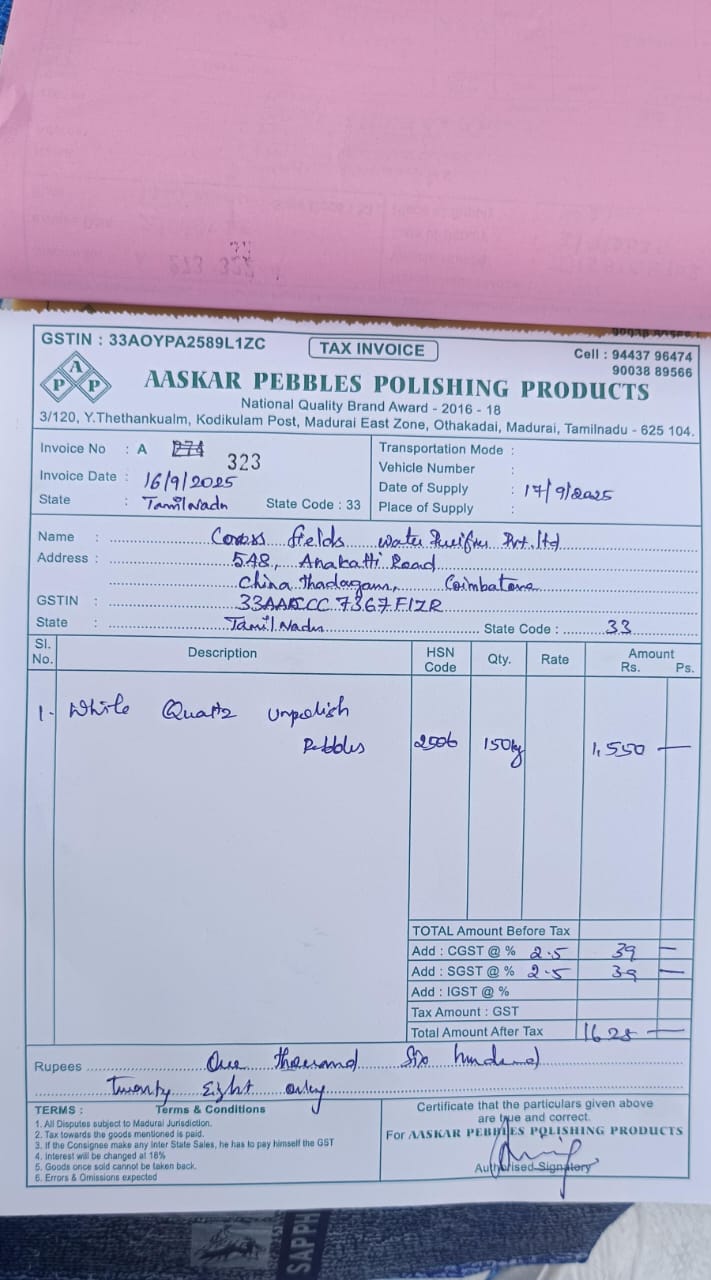 GSTIN : 33AOYPA2589L1ZC
TAX INVOICE
Cell : 94437 96474
90038 89566
A
P P
AASKAR PEBBLES POLISHING PRODUCTS
National Quality Brand Award - 2016 - 18
3/120, Y.Thethankualm, Kodikulam Post, Madurai East Zone, Othakadai, Madurai, Tamilnadu - 625 104.
Invoice No : A 274 323
Invoice Date : 16/9/2025
State : Tamilnadu State Code : 33
Transportation Mode :
Vehicle Number :
Date of Supply : 17/9/2025
Place of Supply :
Name : fields water Purifier Pvt.ltd
Address : 548, Anakatti Road
China thadagam, Coimbatore
GSTIN :
State : Tamil Nadu State Code : 33
Sl. No. Description HSN Code Qty. Rate Amount Rs. Ps.
1. White Quartz unpolish
Pebbles 2506 150kg 1,550 —
TOTAL Amount Before Tax
Add : CGST @ % 2.5 39 —
Add : SGST @ % 2.5 39 —
Add : IGST @ %
Tax Amount : GST
Total Amount After Tax 1628 —
Rupees One thousand Six hundred
Twenty Eight only
TERMS : Terms & Conditions
1. All Disputes subject to Madurai Jurisdiction.
2. Tax towards the goods mentioned is paid.
3. If the Consignee make any Inter State Sales, he has to pay himself the GST
4. Interest will be changed at 18%
5. Goods once sold cannot be taken back.
6. Errors & Omissions expected
Certificate that the particulars given above
are true and correct.
For AASKAR PEBBLES POLISHING PRODUCTS
Authorised Signatory
SAPPH